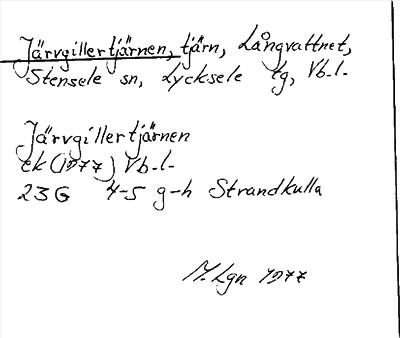 Järvgillertjärnen, tjärn, Långvattnet,
Stensele sn, Lycksele tg, Vb.l.
Järvgillertjärnen
ek (1977) Vb.l.
23G 4-5 g-h Strandkulla
M. Lgn 1977